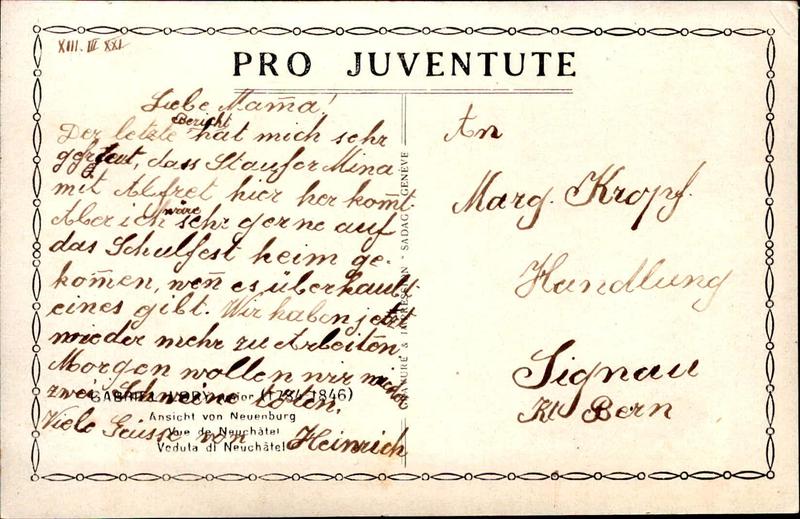 XIII. III XXI
PRO JUVENTUTE
Liebe Mam̄a!
Der letzte Bericht hat mich sehr
gefreut, dass Staufer Mina
mit Alfret hier her kom̄t.
Aber ich wäre sehr gerne auf
das Schulfest heim ge-
kom̄en, wen̄ es überhaubt
eines gibt. Wir haben jetzt
wieder mehr zu Arbeiten
Morgen wollen wir wieder
zwei Schweine töten.
Viele Grüsse von Heinrich
GABRIEL LORY (1784-1846)
Ansicht von Neuenburg
Vue de Neuchâtel
Veduta di Neuchâtel
"SADAG" GENÈVE
An
Marg. Kropf.
Handlung
Signau
Kt. Bern